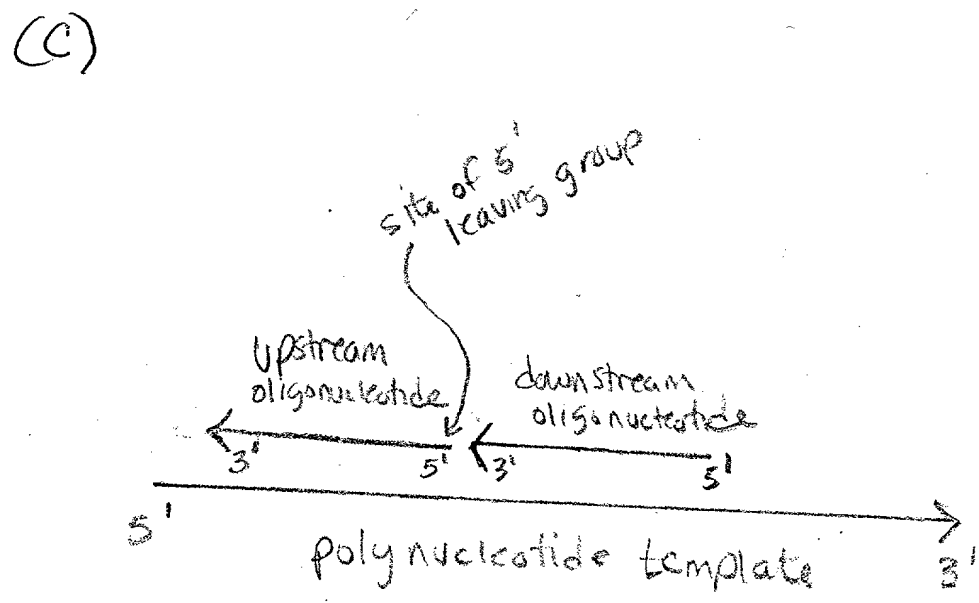 (C)
site of 5'
leaving group
upstream
oligonucleotide
downstream
oligonucleotide
3' 5' 3' 5'
5' 3'
polynucleotide template